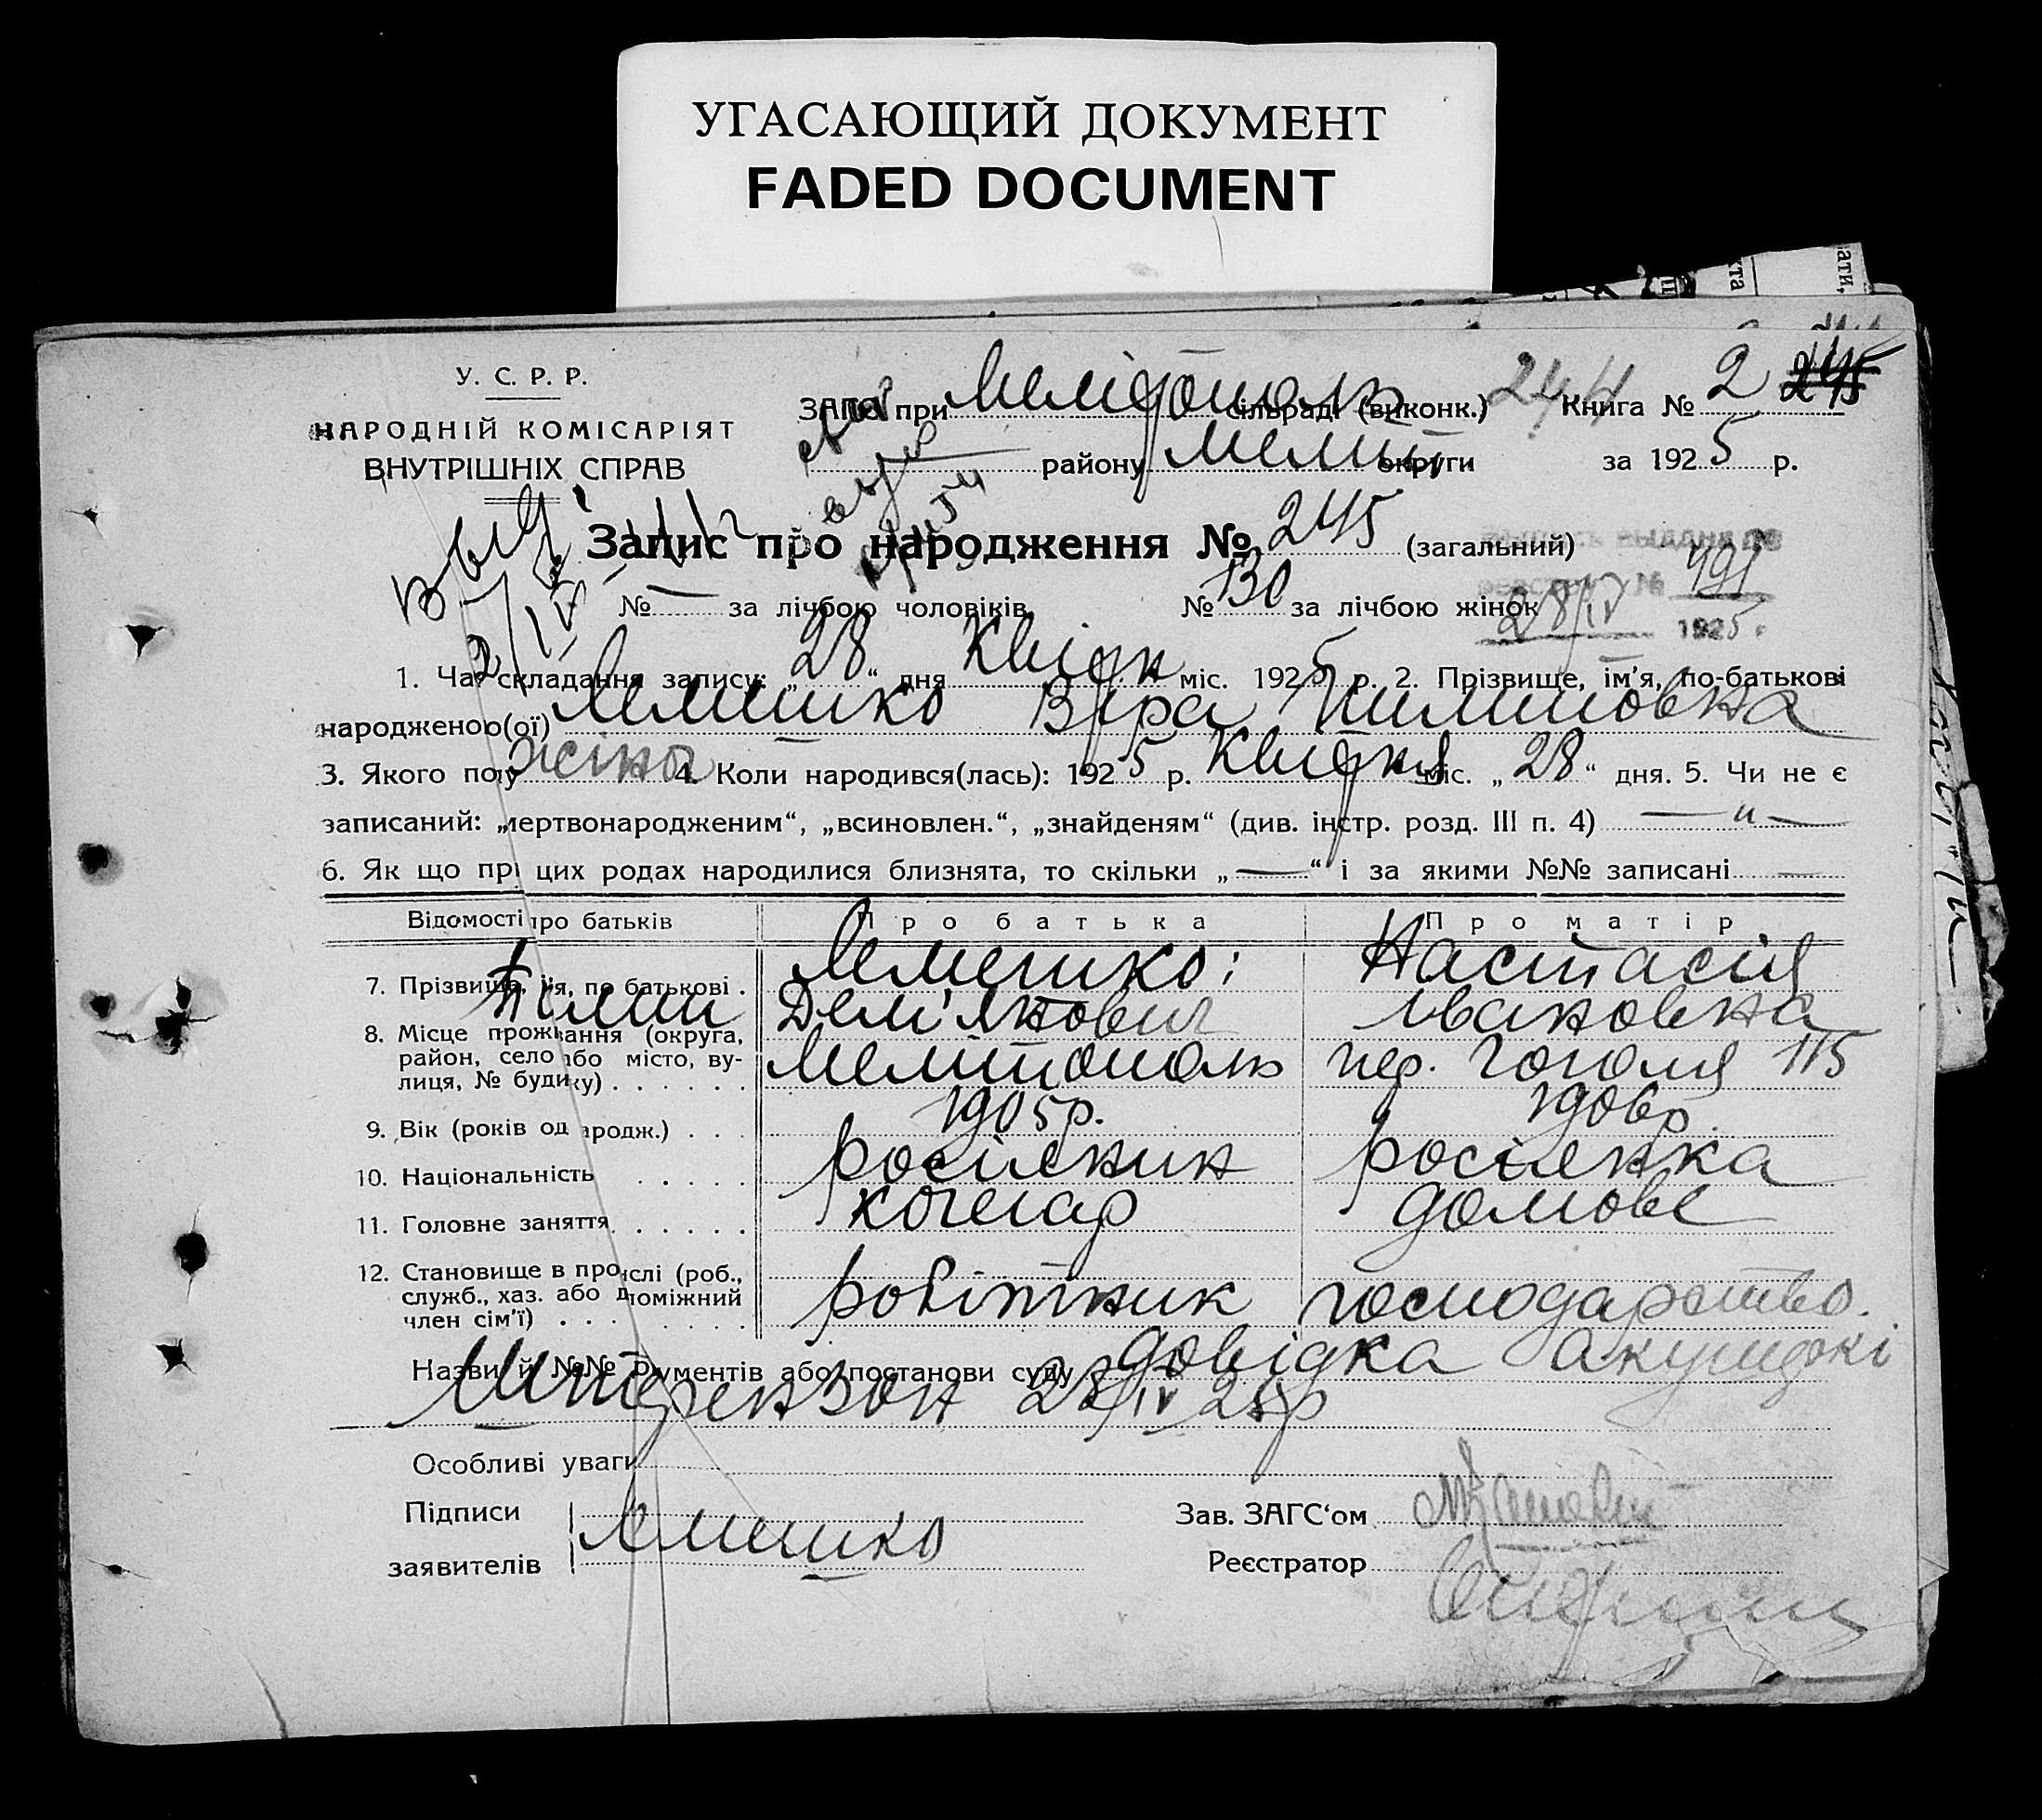 УГАСАЮЩИЙ ДОКУМЕНТ
FADED DOCUMENT
У. С. Р. Р.
НАРОДНІЙ КОМІСАРІЯТ
ВНУТРІШНІХ СПРАВ
ЗАГС при Мелітополь сільраді (виконк.) 244 Книга № 2 245
району Меліт округи за 1925 р.
Запис про народження № 245 (загальний)
№ — за лічбою чоловіків № 130 за лічбою жінок
491
28/IV 1925 г
1. Час складання запису: „28“ дня Квітн міс. 1925 р. 2. Прізвище, ім’я, по-батькові
народженого(ої) Лемешко Віра Пилиповна
3. Якого полу жіноч 4. Коли народився(лась): 1925 р. Квітня міс. „28“ дня. 5. Чи не є
записаний: „мертвонародженим“, „всиновлен.“, „знайденям“ (див. інстр. розд. III п. 4) — „ —
6. Як що при цих родах народилися близнята, то скільки „—“ і за якими №№ записані —
Відомості про батьків Про батька Про матір
7. Прізвище, ім'я, по батькові . Лемешко: Настасія
Пилип Дем'янович Івановна
8. Місце прожвання (округа,
район, село або місто, ву-
лиця, № будинку) . . . . . . Мелітополь пер. Гоголя 115
9. Вік (років од народж.) . . . 1905р. 1906р.
10. Національність . . . . . росіянин росіянка
11. Головне заняття . . . . . кочегар домове
12. Становище в промислі (роб.,
служб., хаз. або допоміжний
член сім’ї) . . . . . . . . робітник господарство.
Назви й №№ документів або постанови суду довідка акушерки
Штерензон 28/IV 25р
Особливі уваги
Підписи
заявителів Лемешко
Зав. ЗАГС‘ом
Реєстратор